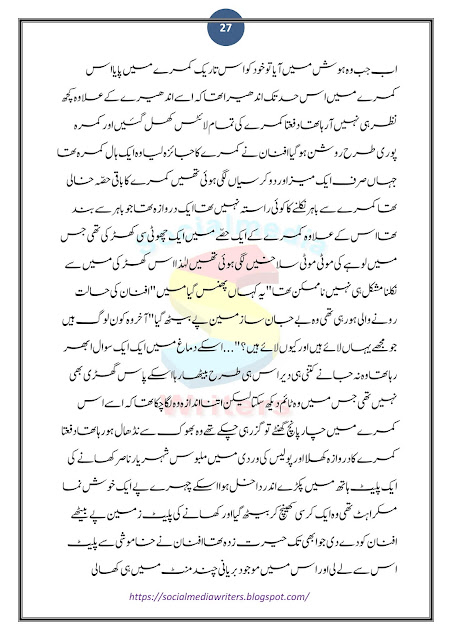 27
اب جب وہ ہوش میں آیا تو خود کو اس تاریک کمرے میں پایا اس
کمرے میں اس حد تک اندھیرا تھا کہ اسے اندھیرے کے علاوہ کچھ
نظر ہی نہیں آ رہا تھا دفعتا کمرے کی تمام لائٹس کھل گئیں اور کمرہ
پوری طرح روشن ہو گیا افنان نے کمرے کا جائزہ لیا وہ ایک ہال کمرہ تھا
جہاں صرف ایک میز اور دو کرسیاں لگی ہوئی تھیں کمرے کا باقی حصّہ خالی
تھا کمرے سے باہر نکلنے کا کوئی راستہ نہیں تھا ایک دروازہ تھا جو باہر سے بند
تھا اس کے علاوہ کمرے کے ایک حصّے میں ایک چھوٹی سی کھڑکی تھی جس
میں لوہے کی موٹی موٹی سلاخیں لگی ہوئی تھیں لہٰذا اس کھڑکی میں سے
نکلنا مشکل ہی نہیں ناممکن تھا "یہ کہاں پھنس گیا میں" افنان کی حالت
رونے والی ہو رہی تھی وہ بے جان سا زمین پے بیٹھ گیا "آخر وہ کون لوگ ہیں
جو مجھے یہاں لائے ہیں اور کیوں لائے ہیں؟"... اسکے دماغ میں ایک ایک سوال ابھر
رہا تھا وہ نہ جانے کتنی ہی دیر اس ہی طرح بیٹھا رہا اسکے پاس گھڑی بھی
نہیں تھی جس میں وہ ٹائم دیکھ سکتا لیکن اتنا اندازہ وہ لگا چکا تھا کہ اسے اس
کمرے میں چار پانچ گھنٹے تو گزر ہی چکے تھے وہ بھوک سے نڈھال ہو رہا تھا دفعتا
کمرے کا دروازہ کھلا اور پولیس کی وردی میں ملبوس شہریار ناصر کھانے کی
ایک پلیٹ ہاتھ میں پکڑے اندر داخل ہوا اسکے چہرے پے ایک خوش نما
مسکراہٹ تھی وہ ایک کرسی کھینچ کر بیٹھ گیا اور کھانے کی پلیٹ زمین پے بیٹھے
افنان کو دے دی جو ابھی تک حیرت زدہ تھا افنان نے خاموشی سے پلیٹ
اس سے لے لی اور اس میں موجود بریانی چند منٹ میں ہی کھالی
Socialmedia
Writers
https://socialmediawriters.blogspot.com/